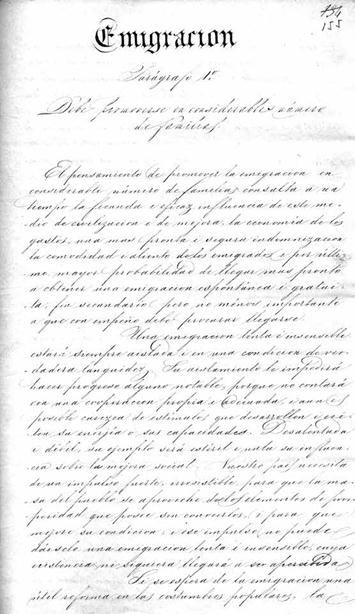 134
155
Emigracion
Parágrafo 1º
Debe promoverse en considerable número
de familias.
El pensamiento de promover la emigracion en
considerable número de familias consulta a un
tiempo la fecunda e eficaz influencia de este me-
dio de civilizacion i de mejora, la economia de los
gastos, una mas pronta e segura indemnizacion
la comodidad e aliento de los emigrados e por últi-
mo mayor probabilidad de llegar mas pronto
a obtener una emigracion espontánea i gratui-
ta, fin secundario pero no ménos importante
a que con empeño debe procurar llegarse.
Una emigracion lenta e insensible
estará siempre aislada e en una condicion de ver-
dadera languidez. Su aislamiento le impedirá
hacer progreso alguno notable, porque no contará
con una cooperacion propia e adecuada, i aun es
posible carezca de estímulos que desarrollen e exi-
ten su energia o sus capacidades. Desalentada
e débil, su ejemplo será estéril e nula su influen-
cia sobre la mejora social. Nuestro pais necesita
de un impulso fuerte, irresistible para que la ma-
sa del pueblo se aproveche de los elementos de pros-
peridad que posee sin conocerlos, i para que
mejore su condicion; i ese impulso no puede
dárselo una emigracion lenta i insensible, cuya
existencia ni siquiera llegará a ser apercibida
Si se espera de la emigracion una
útil reforma en las costumbres populares, la